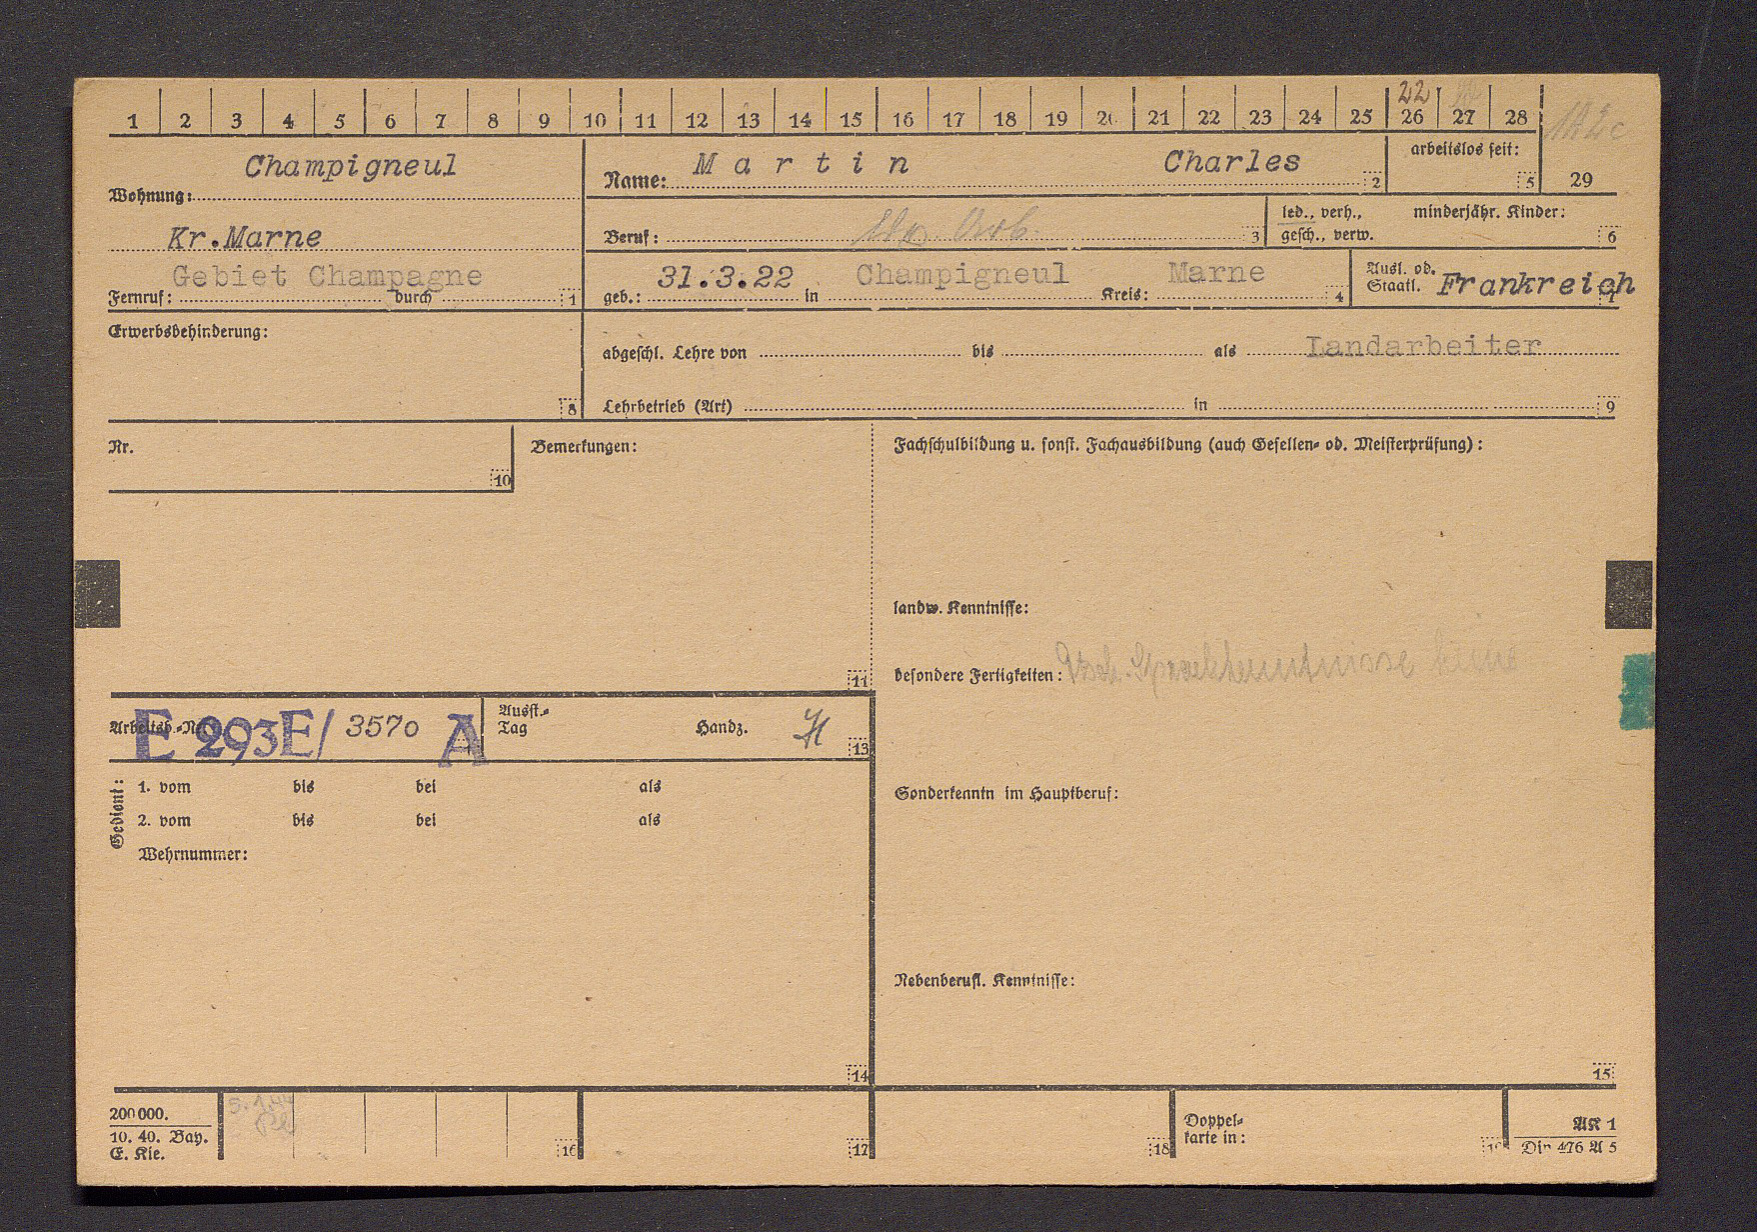 22
1 2 3 4 5 6 7 8 9 10 11 12 13 14 15 16 17 18 19 20 21 22 23 24 25 26 27 28
Champigneul
Wohnung:
Kr.Marne
Gebiet Champagne
Fernruf: durch 1
Name: Martin Charles 2
arbeitslos seit: 5
29
Beruf: 3
led., verh., minderjähr. Kinder:
gesch., verw. 6
geb.: 31.3.22 in Champigneul Kreis: Marne 4
Ausl. od.
Staatl. Frankreich 7
Erwerbsbehinderung:
8
abgeschl. Lehre von bis als Landarbeiter
Lehrbetrieb (Art) in 9
Nr.
10
Bemerkungen:
11
Fachschulbildung u. sonst. Fachausbildung (auch Gesellen- od. Meisterprüfung):
landw. Kenntnisse:
besondere Fertigkeiten: Dtsch. Sprachkenntnisse keine
Arbeitsb.-Nr. E 293E/ 3570 A
Ausst.-
Tag Handz. 13
Gedient:
1. vom bis bei als
2. vom bis bei als
Wehrnummer:
14
Sonderkenntn im Hauptberuf:
Nebenberufl. Kenntnisse:
15
200000.
10. 40. Bay.
E. Kie.
5.1.44
16
17
18
Doppel-
karte in:
19
AK 1
Din 476 A 5